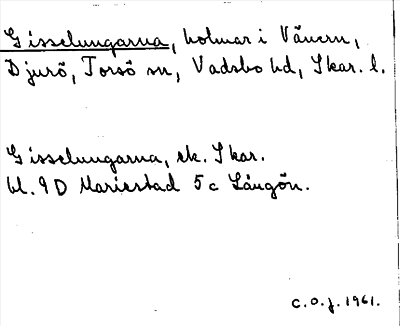 Gisselungarna, holmar i Vänern,
Djurö, Torsö sn, Vadsbo hd, Skar. l.
Gisselungarna, ek. Skar.
bl. 9 D Mariestad 5 c Långön.
C.O.J. 1961.